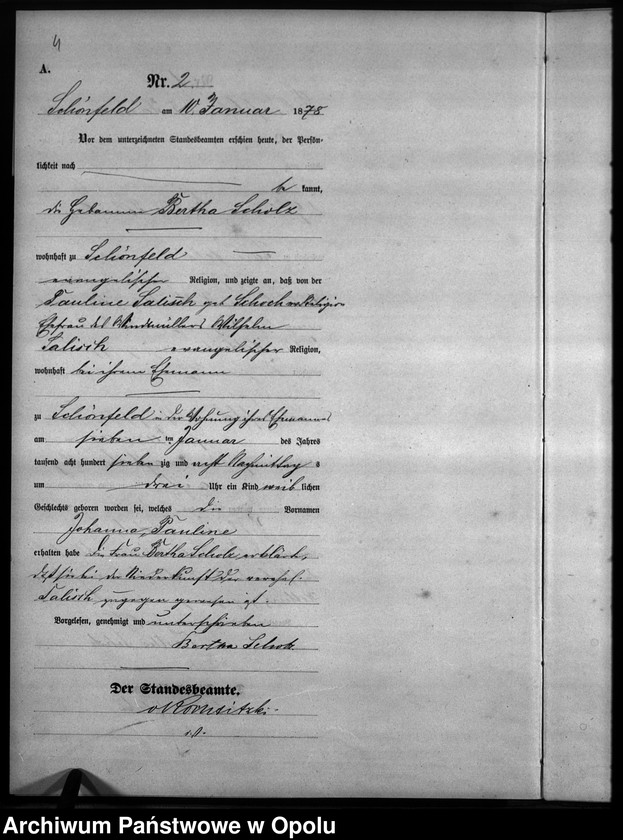 4
A.
Nr. 2
Schönfeld am 10. Januar 1878
Vor dem unterzeichneten Standesbeamten erschien heute, der Persön-
lichkeit nach
be kannt,
die Hebamme Bertha Scholz
wohnhaft zu Schönfeld
evangelischer Religion, und zeigte an, daß von der
Pauline Salisch geb
Ehefrau des Windmüllers Wilhelm
Salisch evangelischer Religion,
wohnhaft bei ihrem Ehemann
zu Schönfeld in der Wohnung ihres Ehemannes
am sieben ten Januar des Jahres
tausend acht hundert sieben zig und acht Nachmittag s
um drei Uhr ein Kind weib lichen
Geschlechts geboren worden sei, welches die Vornamen
Johanna, Pauline
erhalten habe Die Frau Bertha Scholz erklärte,
daß sie bei der Niederkunft der verehel.
Salisch zugegen gewesen ist.
Vorgelesen, genehmigt und unterschrieben
Bertha Scholz
Der Standesbeamte.
Archiwum Państwowe w Opolu